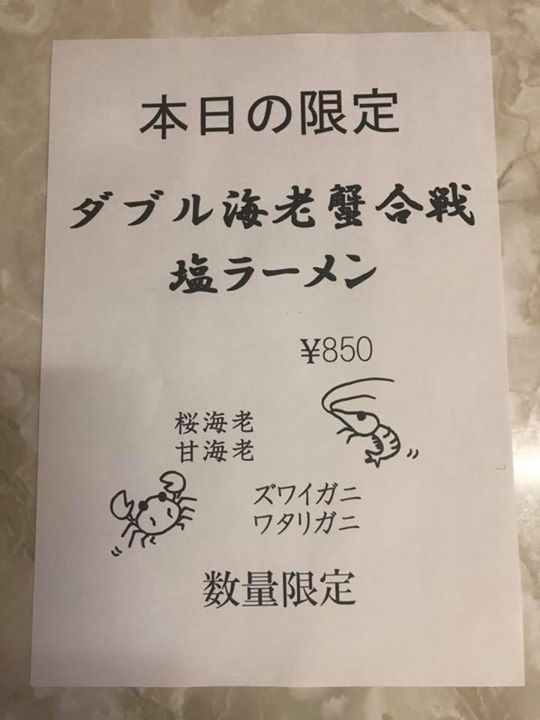 本日の限定
ダブル海老蟹合戦
塩ラーメン
¥850
桜海老
甘海老
ズワイガニ
ワタリガニ
数量限定